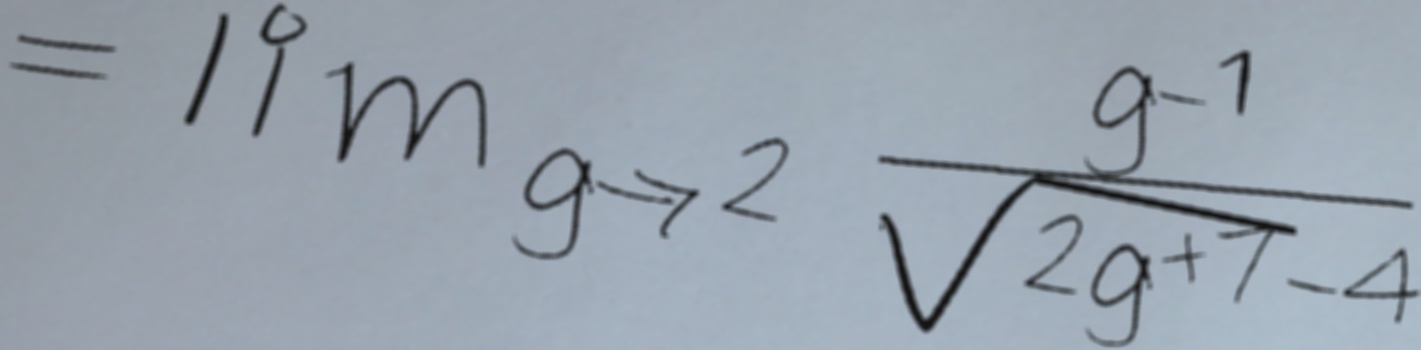 = lim g→2 \frac{g-1}{\sqrt{2g+7}-4}